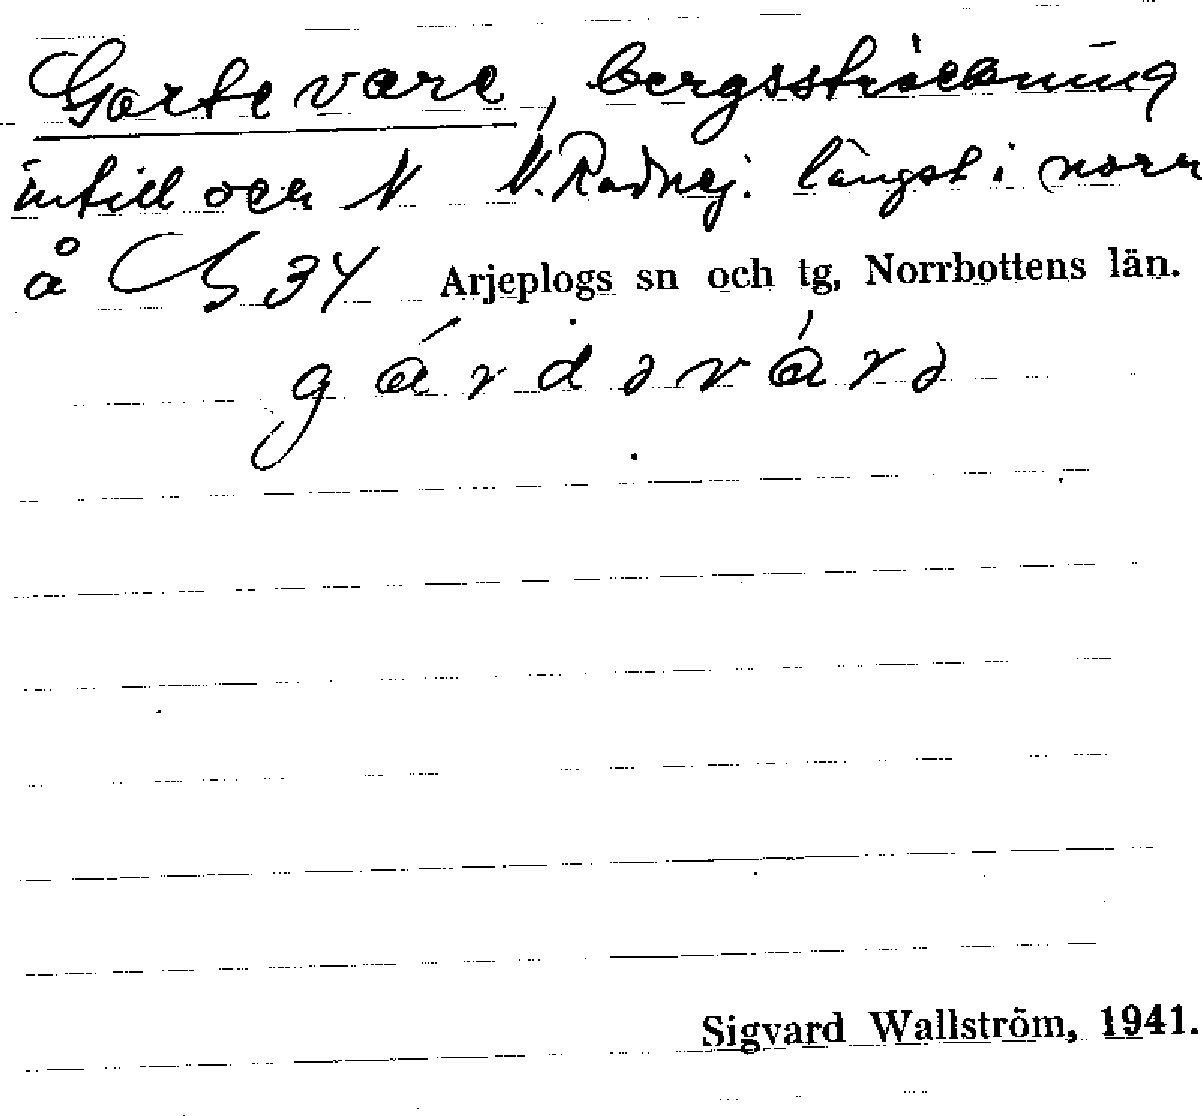 Gortevare, bergssträckning
intill och N N. Radnej. längst i norr
å 34 Arjeplogs sn och tg, Norrbottens län.
gárdəvárə
Sigvard Wallström, 1941.